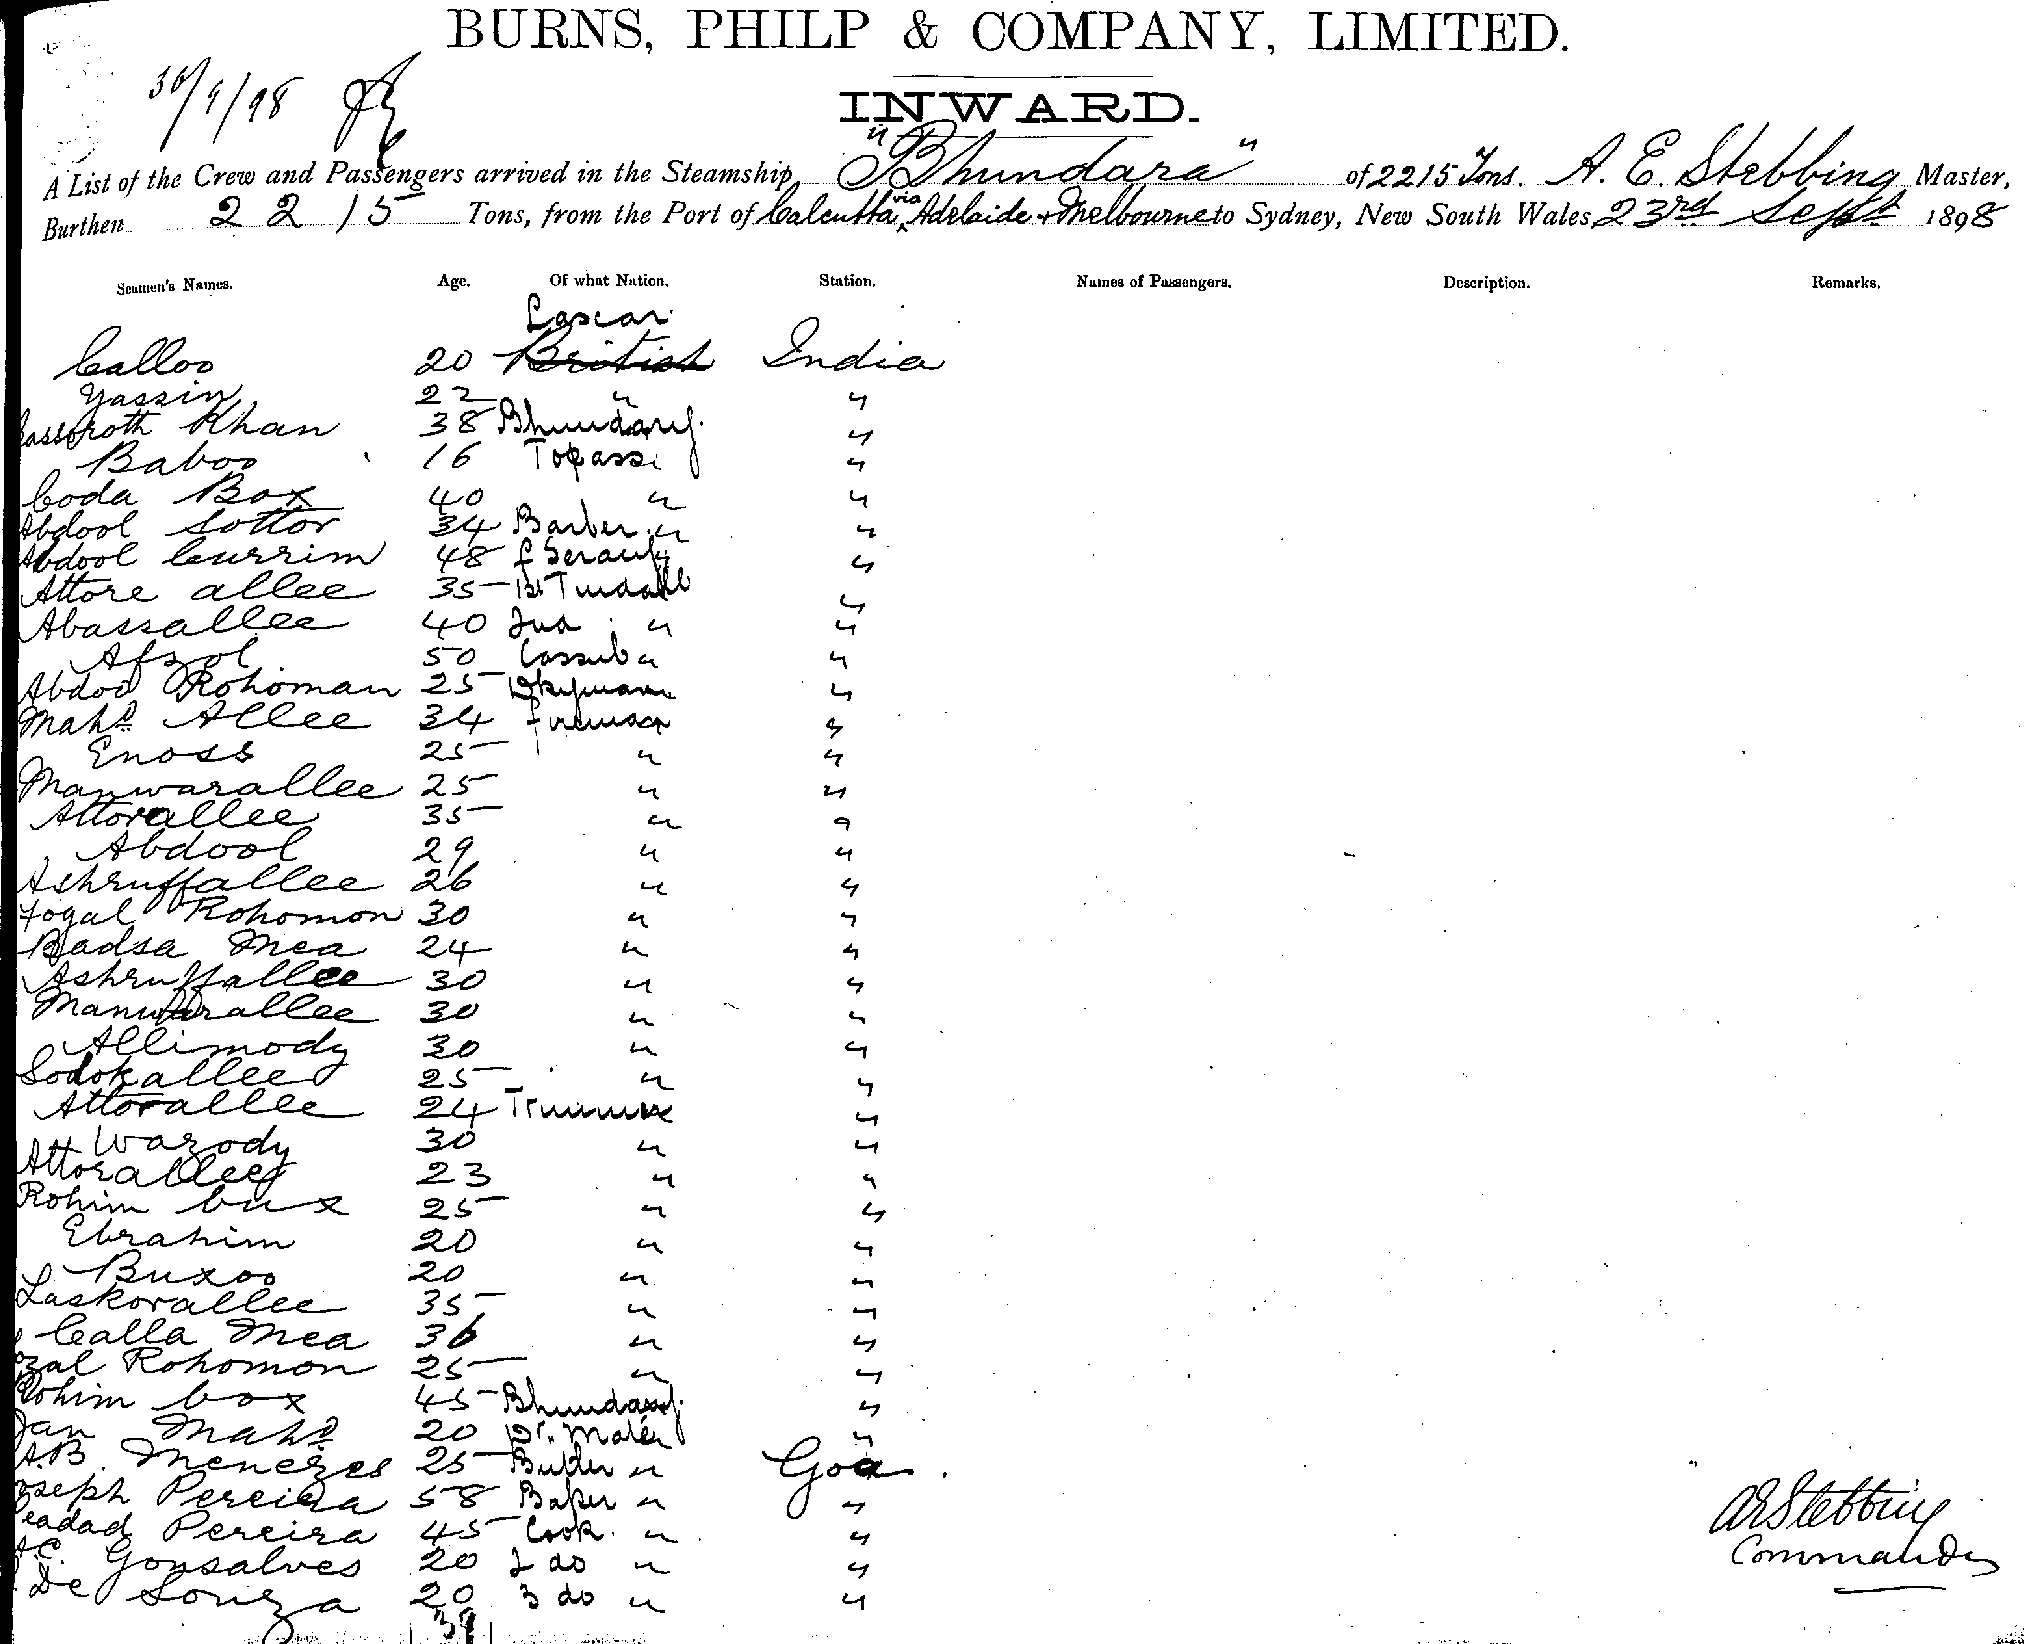 BURNS, PHILP & COMPANY, LIMITED.
30/9/98
INWARD.
A List of the Crew and Passengers arrived in the Steamship "Bhundara" of 2215 Tons. A. E. Stebbing Master,
Burthen 2215 Tons, from the Port of Calcutta via Adelaide + Melbourne to Sydney, New South Wales 23rd Sept 1898
Seamen's Names. Age. Of what Nation. Station. Names of Passengers. Description. Remarks.
Lascar
Calloo 20 British India
Yassin 22 " "
Khan 38 Bhundary. "
Baboo 16 Topass "
Coda Box 40 " "
Abdool Sottor 34 Barber " "
Abdool Currim 48 f Serang "
Attore allee 35 1st Tindall "
Abassallee 40 2nd " "
Afzol 50 Cassub " "
Abdool Rohoman 25 "
Mahd Allee 34 fireman "
Enoss 25 " "
Manwarallee 25 " "
Attorallee 35 " "
Abdool 29 " "
Ashruffallee 26 " "
Fogal Rohomon 30 " "
Badsa Mea 24 " "
Ashruffallee 30 " "
Manwarallee 30 " "
Allimody 30 " "
Sodokallee 25 " "
Attorallee 24 Trimmer "
Wazody 30 " "
Attorallee 23 " "
Rohim bux 25 " "
Ebrahim 20 " "
Buxoo 20 " "
Laskorallee 35 " "
Calla Mea 36 " "
Rohomon 25 " "
Rohim box 45 Bhundary. "
Jan Mahd 20 "
A.B. Menezes 25 Butler " Goa.
Joseph Pereira 58 Baker " "
Pereira 45 Cook. " "
A.C. Gonsalves 20 2 do " "
De Souza 20 3 do " "
39
AEStebbing
Commander